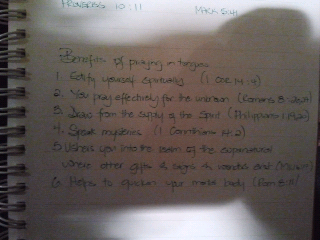 PROVERBS 10:11
Benefits of praying in tongues
1. Edify yourself spiritually (1 Cor 14:4)
2. You pray effectively for the unknown (Romans 8:
3. Draw from the supply of the Spirit (Philippians 1:19
4. Speak mysteries (1 Corinthians 14:2)
5 Ushers you into the realm of the supernatural
where other gifts & signs & wonders exist
6. Helps to quicken your mortal body (Rom 8:11)